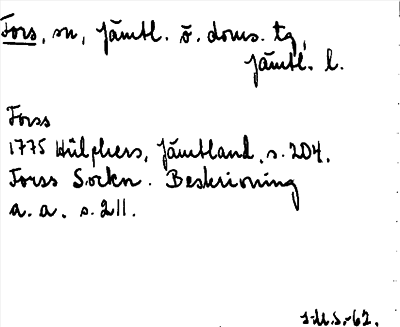 Fors, sn, Jämtl. ö. doms. tg,
Jämtl. l.
Forss
1775 Hülphers, Jämtland, s. 204.
Forss Sockn. Beskrivning
a. a. s. 211.